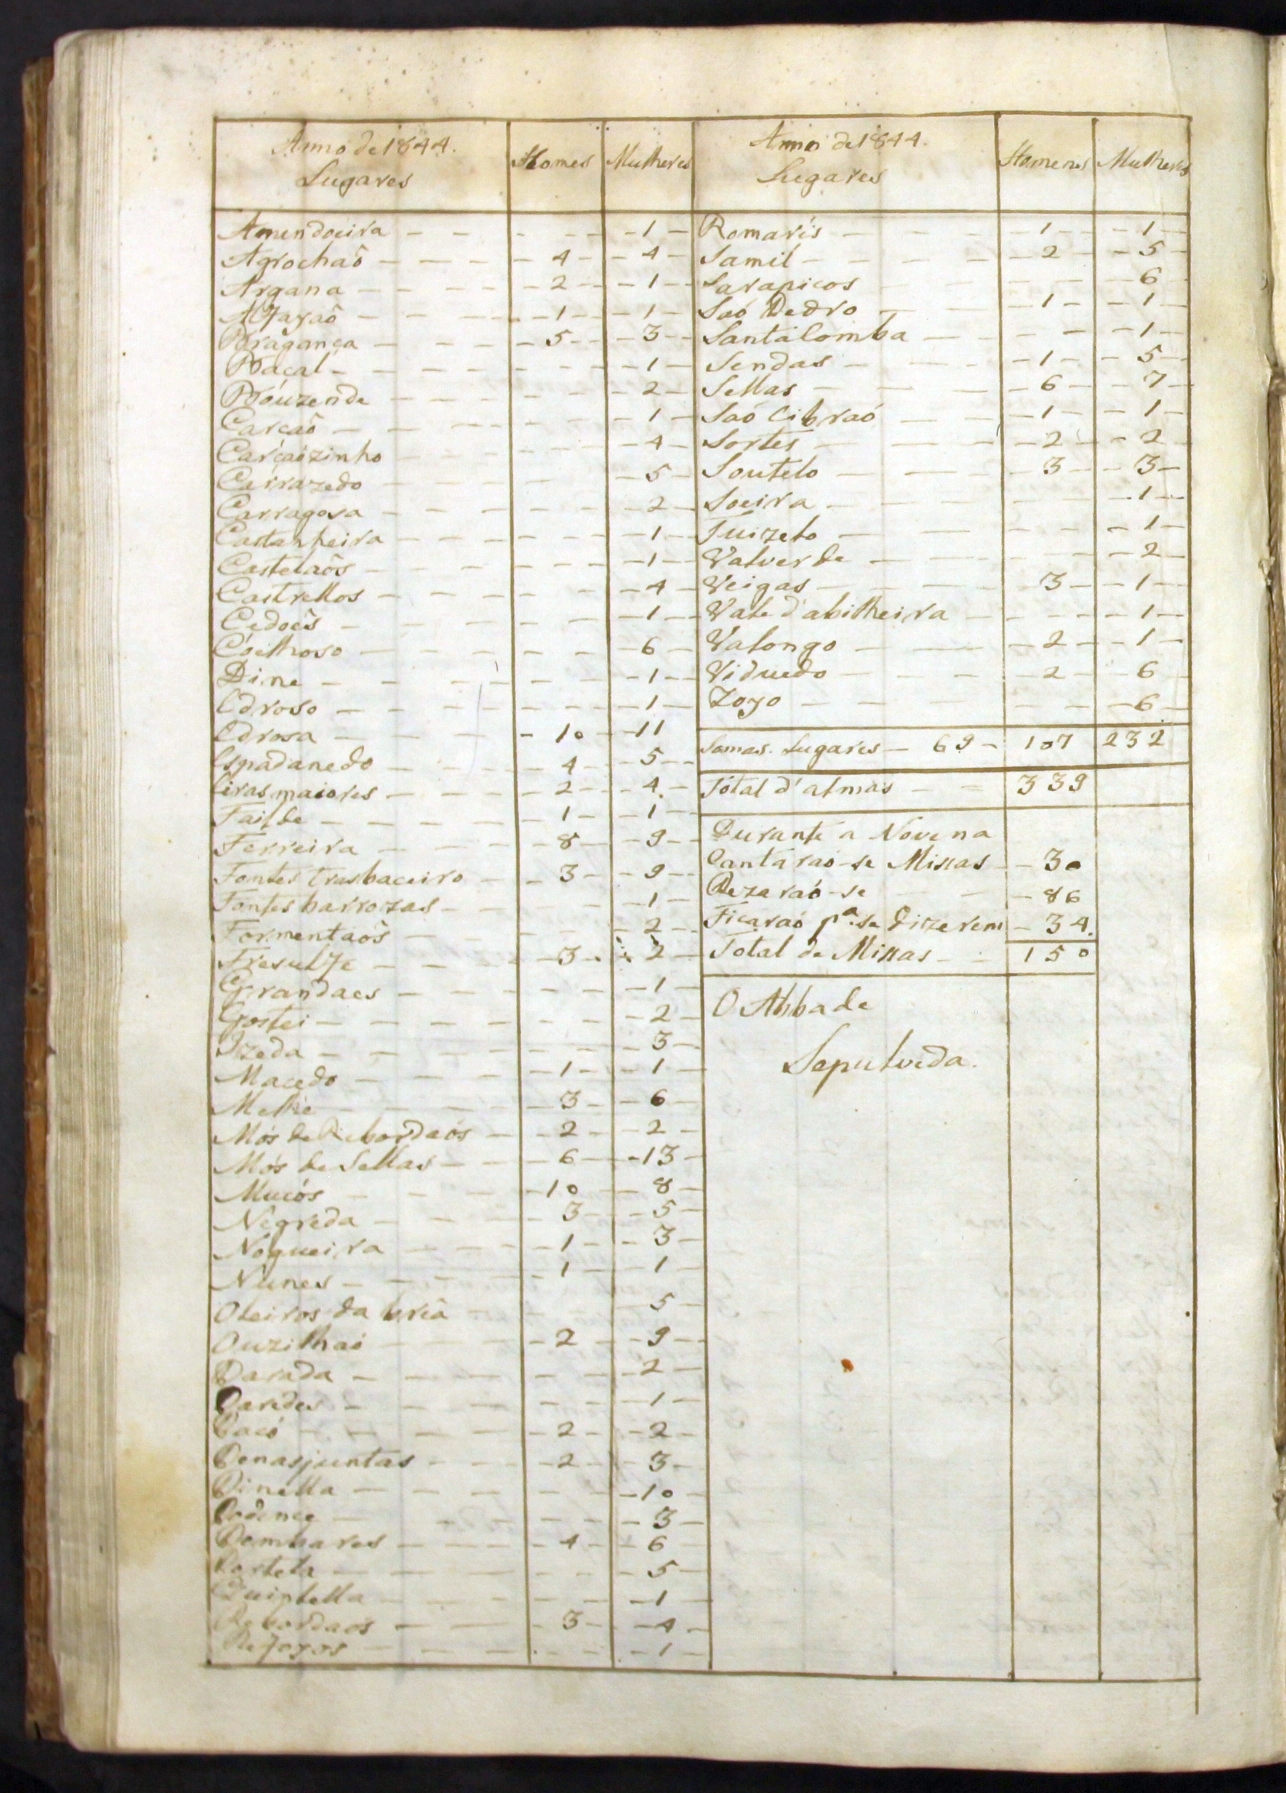 Anno de 1844.
Lugares
Homes
Mulheres
Amendoeira - - - - 1 -
Agrochaõ - - - 4 - 4 -
Argana - - - 2 - 1 -
Alfayaõ - - - 1 - 1 -
Bragança - - - 5 - 3 -
Bacal - - - - 1 -
Bouzende - - - - 2 -
Carcaõ - - - - 1 -
Carçaõzinho - - - - 4 -
Carrazedo - - - - 5 -
Carragosa - - - - 2 -
Castanheira - - - - 1 -
Castelaõs - - - - 1 -
Castrellos - - - - 4 -
Cedoẽs - - - - 1 -
Coelhoso - - - - 6 -
Dine - - - - 1 -
Edroso - - - - 1 -
Edrosa - - - 10 - 11
Espadanedo - - - 4 - 5 -
Eiras maiores - - - 2 - 4 -
Failde - - - 1 - 1 -
Ferreira - - - 8 - 9 -
Fontes trasbaceiro - 3 - 9 -
Fontes barrozas - - - - 1 -
Formentaõs - - - - 2 -
Fresulfe - - - 3 - 2 -
Grandaes - - - - 1 -
Gostei - - - - 2 -
Izeda - - - - 3 -
Macedo - - - 1 - 1 -
Melhe - - - 3 - 6 -
Mós de Rebordaós - 2 - 2 -
Mós de Sellas - - 6 - 13 -
Muiós - - - 10 - 8 -
Negreda - - - 3 - 5 -
Nogueira - - - 1 - 3 -
Nunes - - - 1 - 1 -
Oleiros da - - - 5 -
Ouzilhaó - - - 2 - 9 -
Parada - - - - 2 -
Paredes - - - - 1 -
Pacó - - - 2 - 2 -
Penasjuntas - - - 2 - 3 -
Pinella - - - - 10 -
Podence - - - - 3 -
Pombares - - - 4 - 6 -
Portela - - - - 5 -
Quintella - - - - 1 -
Rebordaos - - - 3 - 4 -
Refoyos - - - - 1 -
Anno de 1844.
Lugares
Homenes
Mulheres
Romariś - - - 1 - 1 -
Samil - - - 2 - 5 -
Sarapicos - - - 6
Saó Pedro - - - 1 - 1 -
Santalomba - - - 1 -
Sendas - - - 1 - 5 -
Sellas - - - 6 - 7 -
Saó Cibraó - - - 1 - 1 -
Sortes - - - 2 - 2
Soutelo - - - 3 - 3 -
Soeira - - - 1 -
Tuizelo - - - 1 -
Valverde - - - 2 -
Veigas - - - 3 - 1 -
Vale d'abilheira - - - 1 -
Valongo - - - 2 - 1 -
Viduedo - - - 2 - 6 -
Zoyo - - - 6 -
Somas. Lugares - 69 - 107 232
Total d'almas - - 339
Durante a Novena
Cantáraó-se Missas - 30
Rezaraó-se - - 86
Ficaraó pª. se dizerem - 34.
Total de Missas - - 150
O Abbade
Sepulveda.